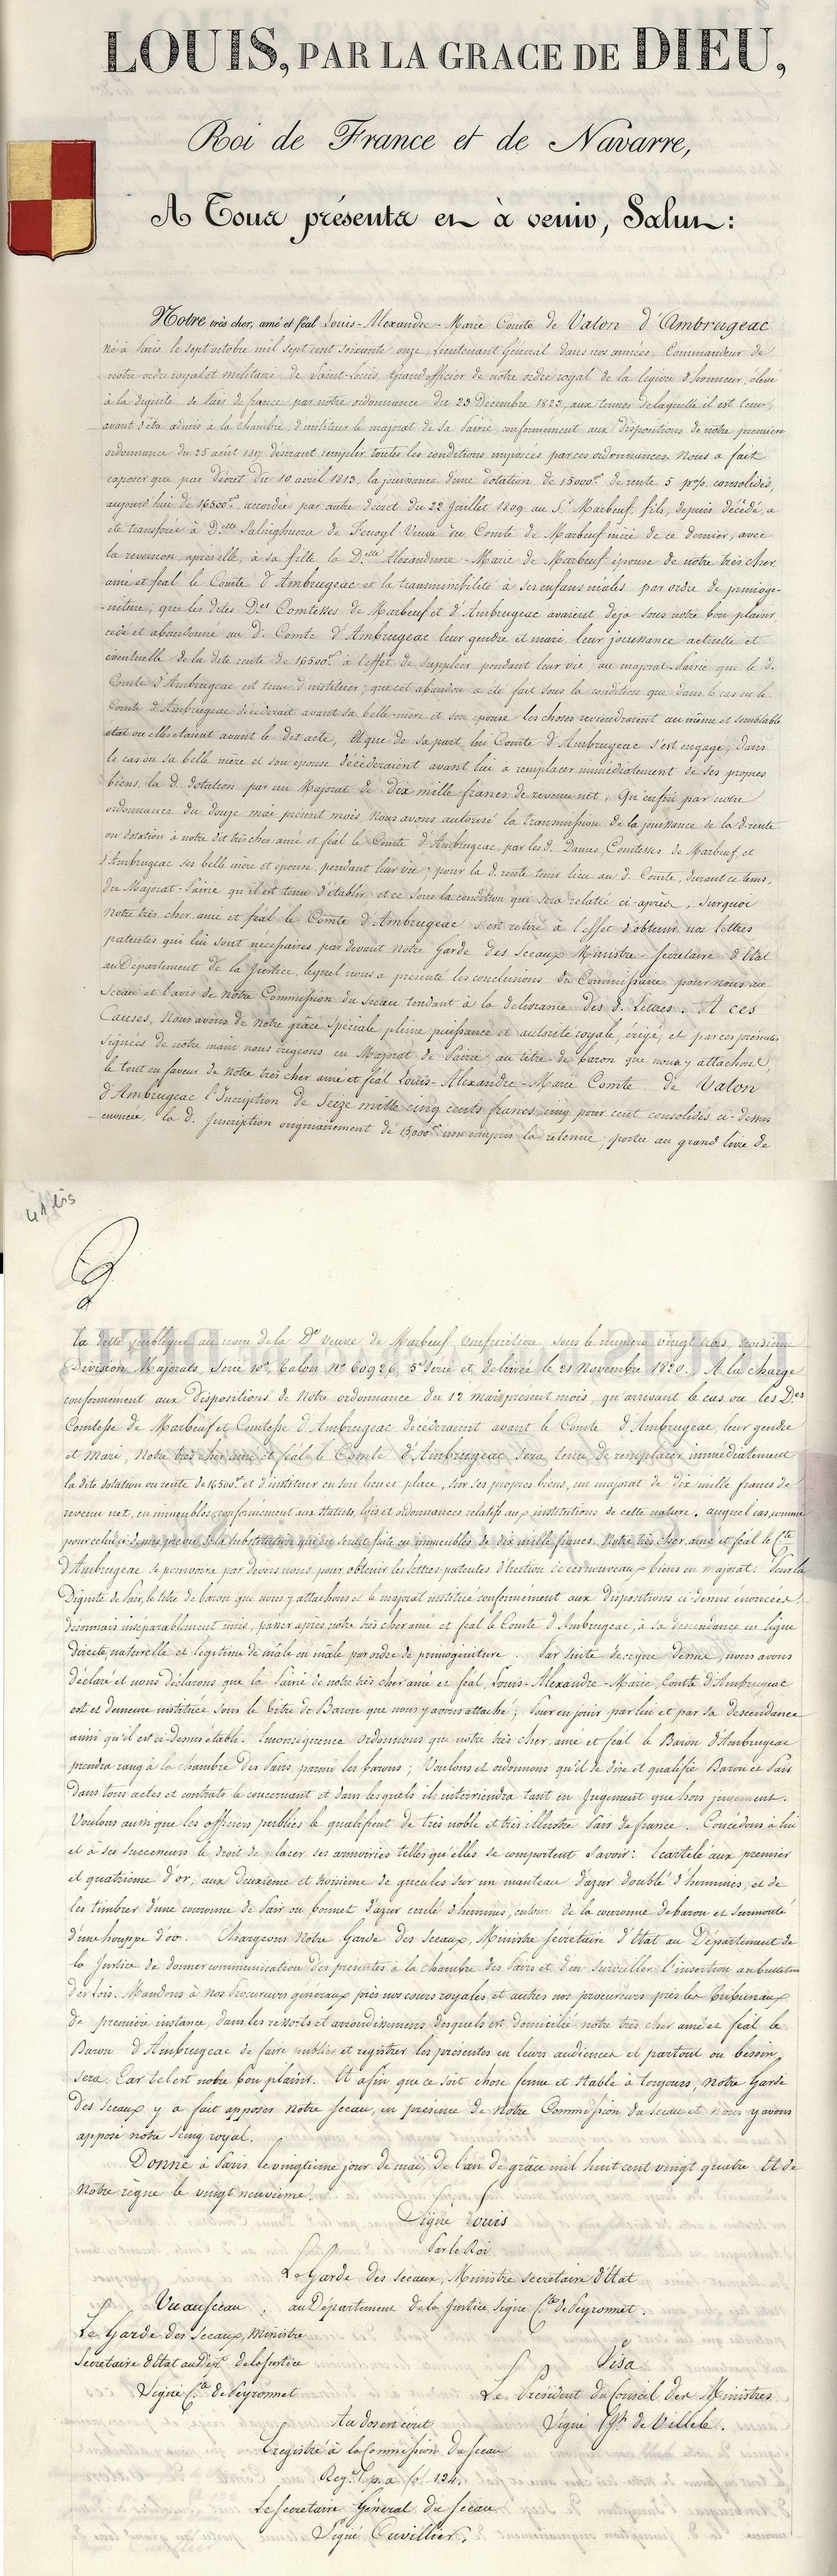 LOUIS, PAR LA GRACE DE DIEU,
Roi de France et de Navarre,
A Tous présents et à venir, Salut:
Notre très cher, amé et féal Louis-Alexandre-Marie Comte de Valon d'Ambrugeac
né à Paris le sept octobre mil sept cent soixante onze, Lieutenant Général dans nos armées, Commandeur de
notre ordre royal et militaire de Saint-Louis, Grand officier de notre ordre royal de la légion d'honneur, élevé
à la dignité de Pair de france par notre ordonnance du 23 Décembre 1823, aux termes de laquelle il est tenu,
avant d'être admis à la Chambre, d'instituer le majorat de sa Pairie, conformément aux dispositions de notre première
ordonnance du 25 août 1817 désirant remplir toutes les conditions imposées par ces ordonnances, Nous a fait
exposer que par décret du 10 avril 1813, la jouissance d'une dotation de 15000f. de rente 5 p% consolidés,
aujourd'hui de 16500f. accordée par autre décret du 22 Juillet 1809 au S.r Marbeuf fils, depuis décédé, a
été transférée à D.elle Salinghuera de Fenoyl Veuve du Comte de Marbeuf mère de ce dernier, avec
la reversion après elle, à sa fille la D.elle Alexandrine-Marie de Marbeuf épouse de notre très cher
amé et féal le Comte d'Ambrugeac et la transmissibilité à ses enfans mâles par ordre de primogé-
niture; que les dites D.es Comtesses de Marbeuf et d'Ambrugeac avaient déjà sous notre bon plaisir
cédé et abandonné au d. Comte d'Ambrugeac leur gendre et mari leur jouissance actuelle et
éventuelle de la dite rente de 16500f. à l'effet de suppléer pendant leur vie, au majorat-Pairie que le d.
Comte d'Ambrugeac est tenu d'instituer; que cet abandon a été fait sous la condition que dans le cas où le
Comte d'Ambrugeac décéderait avant sa belle-mère et son épouse les choses reviendraient au même et semblable
état où elles étaient avant le dit acte, Et que de sa part, lui Comte d'Ambrugeac s'est engagé, dans
le cas où sa belle mère et son épouse décéderaient avant lui à remplacer immédiatement de ses propres
biens, la d. dotation par un Majorat de dix mille francs de revenu net, Qu'enfin par notre
ordonnance du douze mai présent mois Nous avons autorisé la transmission de la jouissance de la d. rente
ou dotation à notre dit très cher amé et féal le Comte d'Ambrugeac, par les d. Dames, Comtesses de Marbeuf, et
d'Ambrugeac ses belle mère et épouse, pendant leur vie; pour la d. rente tenir lieu au d. Comte, durant ce tems,
du Majorat-Pairie qu'il est tenu d'établir et ce sous la condition qui sera relatée ci-après, Surquoi
Notre très cher amé et féal le Comte d'Ambrugeac s'est retiré à l'effet d'obtenir nos Lettres
patentes qui lui sont nécessaires par devant Notre Garde des Sceaux Ministre Secrétaire d'Etat
au Département de la Justice, lequel nous a présenté les conclusions du Commissaire pour nous au
Sceau et l'avis de Notre Commission du Sceau tendant à la délivrance des d. Lettres. A ces
Causes, Nous avons de notre grâce spéciale pleine puissance et autorité royale, érigé, et par ces présentes
signées de notre main nous érigeons en Majorat de Pairie, au titre de baron que nous y attachons,
le tout en faveur de Notre très cher amé et féal Louis-Alexandre-Marie Comte de Valon
d'Ambrugeac l'Inscription de Seize mille cinq cents francs, cinq pour cent consolidés ci-dessus
énoncée, la d. Inscription originairement de 15,000f. non compris la retenue; portée au grand livre de
41 bis
la dette publique au nom de la De Veuve de Marbeuf usufruitière sous le numéro vingt trois, troisième
Division Majorats, Série 10e. Talon No 60926, 5e Série et délivrée le 21 Novembre 1820. A la charge
conformément aux dispositions de Notre ordonnance du 12 mai présent mois, qu'arrivant le cas où les D.es
Comtesse de Marbeuf et Comtesse d'Ambrugeac décéderaient avant le Comte d'Ambrugeac, leur gendre
et Mari, Notre très cher amé et féal le Comte d'Ambrugeac sera tenu de remplacer immédiatement
la dite dotation ou rente de 16500f. et d'instituer en son lieu et place, sur ses propres biens, un majorat de dix mille francs de
revenu net, en immeubles conformément aux statuts, lois et ordonnances relatifs aux institutions de cette nature. auquel cas, comme
pour celui de la substitution qui en serait faite en immeubles de dix mille francs, Notre très cher amé et féal le Cte
d'Ambrugeac se pourvoira par devers nous pour obtenir les lettres-patentes d'érection de ces nouveaux biens en majorat. Pour la
Dignité de Pair, le titre de baron que nous y attachons et le majorat institué conformément aux dispositions ci-dessus énoncées
désormais inséparablement unis, passer après notre très cher amé et féal le Comte d'Ambrugeac, à sa descendance en ligne
directe, naturelle et légitime de mâle en mâle par ordre de primogéniture. Par suite de ce que dessus, nous avons
déclaré et nous déclarons que la Pairie de notre très cher amé et féal, Louis-Alexandre-Marie, Comte d'Ambrugeac
est et demeure instituée sous le titre de Baron que nous y avons attaché; Pour en jouir par lui et par sa descendance
ainsi qu'il est ci-dessus établi. En conséquence ordonnons que notre très cher, amé et féal le Baron d'Ambrugeac
prendra rang à la chambre des Pairs, parmi les barons; Voulons et ordonnons qu'il se dise et qualifie Baron et Pair
dans tous actes et contrats le concernant et dans lesquels il interviendra tant en Jugement que hors jugement.
Voulons aussi que les officiers publics le qualifient de très noble et très illustre Pair de france. Concédons à lui
et à ses successeurs le droit de placer ses armoiries telles qu'elles se comportent Savoir: Ecartelé aux premier
et quatrième d'or, aux deuxième et troisième de gueules sur un manteau d'azur doublé d'hermines, et de
les timbrer d'une couronne de Pair ou bonnet d'azur cerclé d'hermines, entouré de la couronne de baron et surmonté
d'une houppe d'or. Chargeons Notre Garde des Sceaux, Ministre Secrétaire d'Etat au Département de
la Justice de donner communication des présentes à la chambre des Pairs et d'en surveiller l'insertion au bulletin
des lois. Mandons à nos Procureurs généraux près nos cours royales, et autres nos procureurs près les Tribunaux
de première instance, dans les ressorts et arrondissemens desquels est domicilié notre très cher amé et féal le
Baron d'Ambrugeac de faire publier et registrer les présentes en leurs audiences et partout où besoin
sera: Car tel est notre bon plaisir. Et afin que ce soit chose ferme et stable à toujours, Notre Garde
des Sceaux y a fait apposer Notre Sceau, en présence de Notre Commission du Sceau et nous y avons
apposé notre Seing royal.
Donné à Paris le vingtième jour de mai, de l'an de grâce mil huit cent vingt quatre Et de
Notre règne le vingt neuvième.
Signé Louis
Par le Roi
Le Garde des Sceaux, Ministre Secrétaire d'Etat
au Département de la Justice, Signé Cte de Peyronnet.
Vu au Sceau
Le Garde des Sceaux, Ministre
Secrétaire d'Etat au Dépt de la Justice
Signé Cte de Peyronnet
Visa
Le Président du Conseil des Ministres
Signé Jh de Villèle.
Au dos est écrit
Enregistré à la Commission du Sceau
Reg. P. p. a fo 134.
Le Secrétaire Général du Sceau
Signé Cuvillier.